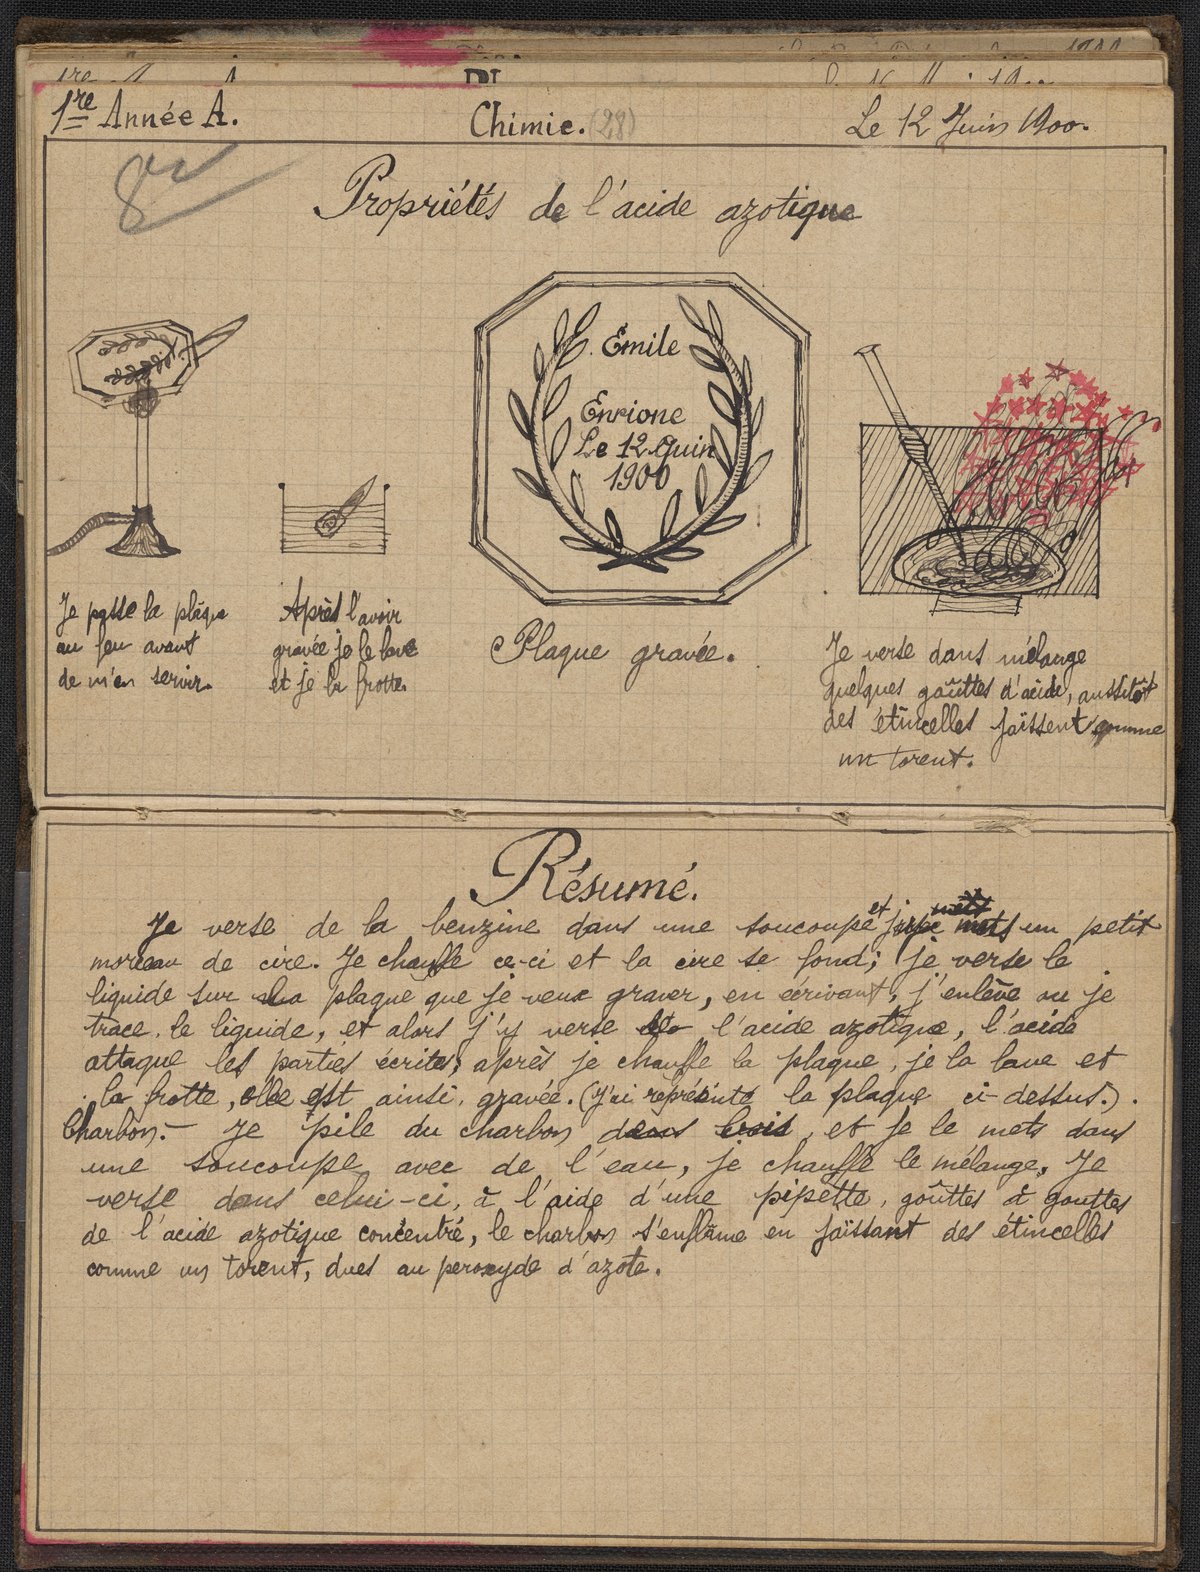 1re Année A.
Chimie. (28)
Le 12 Juin 1900.
8
Propriétés de l'acide azotique
Emile
Enrione
Le 12 Juin
1900
Je passe la plaque
au feu avant
de m'en servir.
Après l'avoir
gravée je le lave
et je la frotte.
Plaque gravée.
Je verse dans mélange
quelques goûttes d'acide, aussitôt
des étincelles jaïssent comme
un torent.
Résumé.
Je verse de la benzine dans une soucoupe et je mets un petit
morceau de cire. Je chauffe ce-ci et la cire se fond; je verse le
liquide sur la plaque que je veux graver, en écrivant, j'enlève ou je
trace, le liquide, et alors j'y verse de l'acide azotique, l'acide
attaque les parties écrites, après je chauffe la plaque, je la lave et
la frotte, elle est ainsi, gravée. (J'ai représinté la plaque ci-dessus.).
Charbon.- Je pile du charbon dans bois, et je le mets dans
une soucoupe avec de l'eau, je chauffe le mélange. Je
verse dans celui-ci, à l'aide d'une pipette, goûttes à gouttes
de l'acide azotique concentré, le charbon s'enflâme en jaïssant des étincelles
comme un torent, dues au peroxyde d'azote.